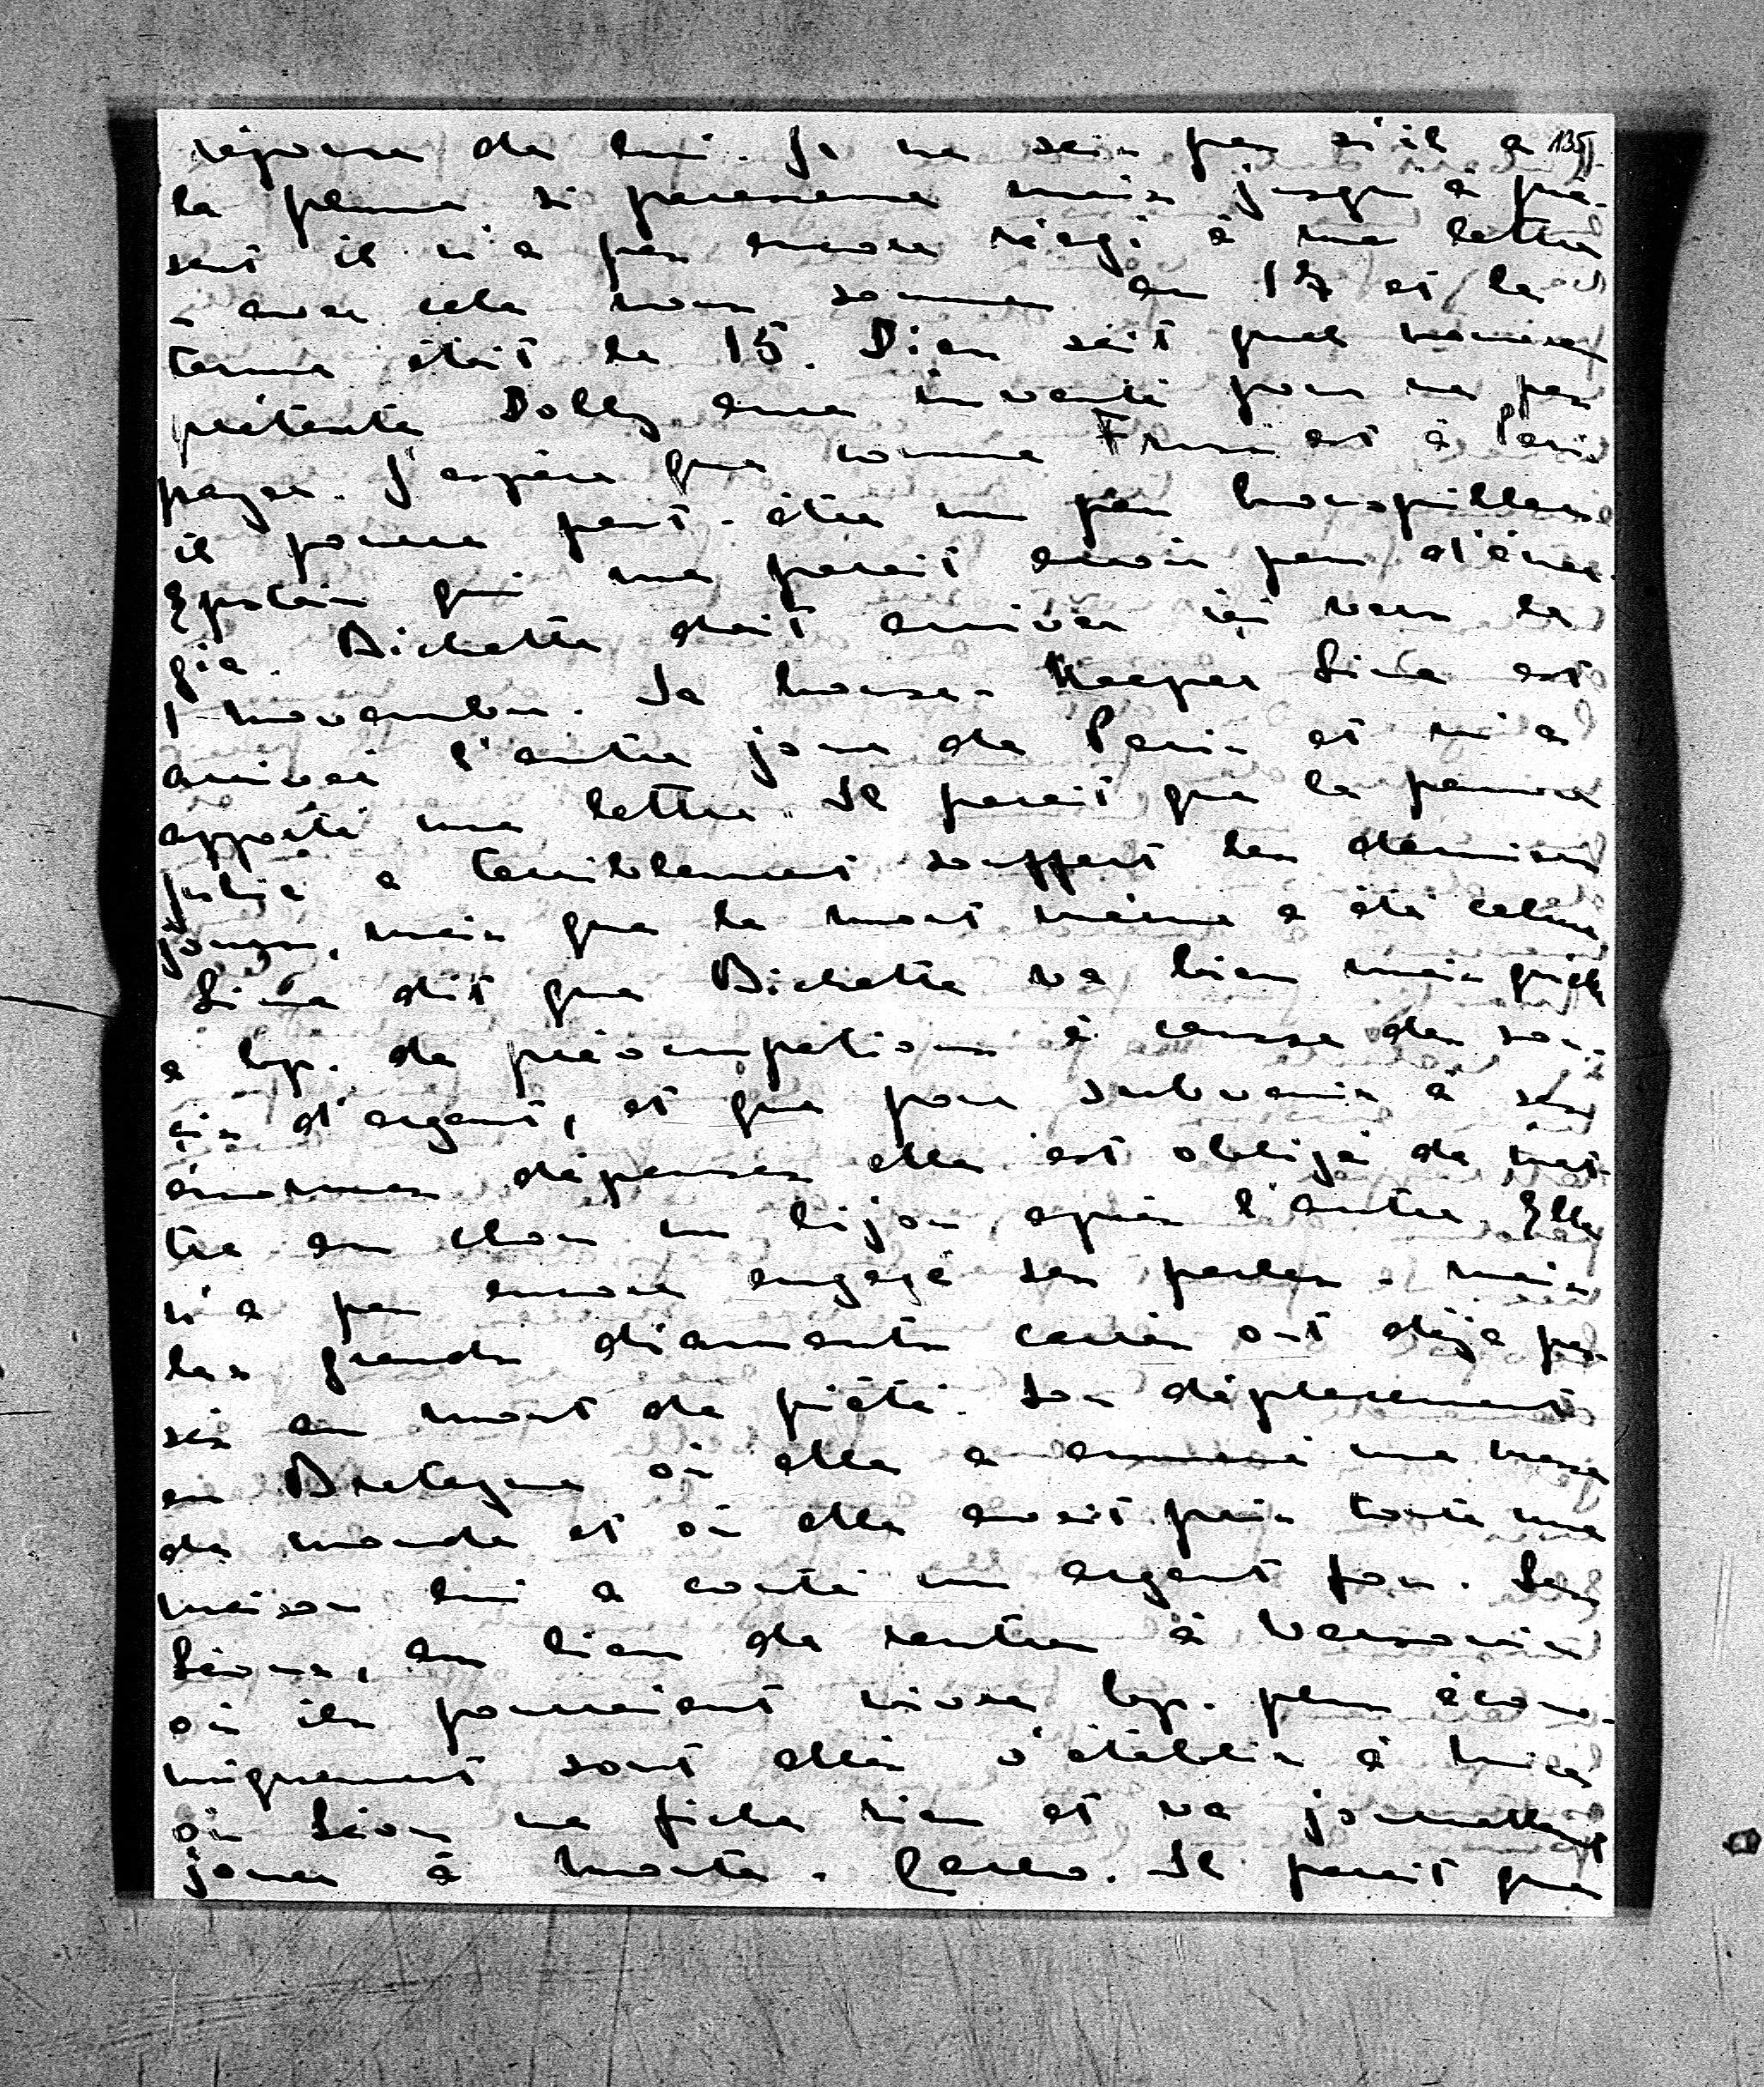 réponse de lui. Je ne sais pas s'il a 135
la plume si paresseuse mais jusqu'à pré-
sent il n'a pas encore réagi à ma lettre
- avec cela nous sommes au 17 et le
terme était le 15. Dieu sait quel nouveau
prétexte Dolly aura inventé pour ne pas
payer. J'espère que comme est à Paris
il pourra peut-être un peu houspiller
Epstein qui me parait avoir peu d'éner-
gie. Bichette doit arriver ici vers le
1 novembre. Sa house-Keeper Lina est
arrivée l'autre jour de Paris et m'a
apporté une lettre. Il parait que la pauvre
a terriblement souffert les derniers
jours, mais que la mort même a été calme
Lina dit que Bichette va bien mais qu'elle
a bp. de préocupations à cause des sou-
cis d'argent, et que pour subvenir à ses
énormes dépenses elle est obligé de met-
tre au clou un bijou après l'autre. Elle
n'a pas encore engagé ses perles - mais
les grands diamants carrés ont déjà pas-
sés au mont de piété. Son déplacement
en Bretagne où elle a emmené une masse
de monde et où elle avait pris toute une
maison lui a couté un argent fou. Les
Léons, au lieu de rentrer à Varsovie
où ils pourraient vivre bp. plus écono-
miquement sont allés s'établir à Nice
où Léon ne fiche rien et va journellement
jouer à Monte-Carlo. Il parait que